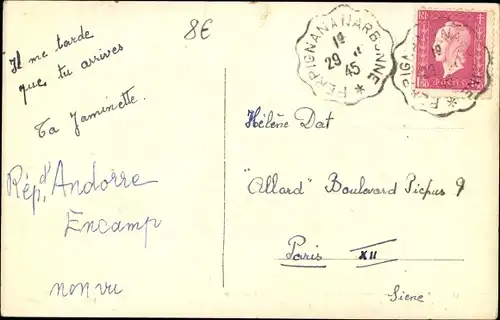 8E
Il me tarde
que tu arrives
Ta Jaminette.
Rép. d'Andorre
Encamp
non vu
PERPIGNAN A NARBONNE
19
29 11
45
Hélène Dat
"Allard" Boulevard Picpus 9
Paris XII
Siene